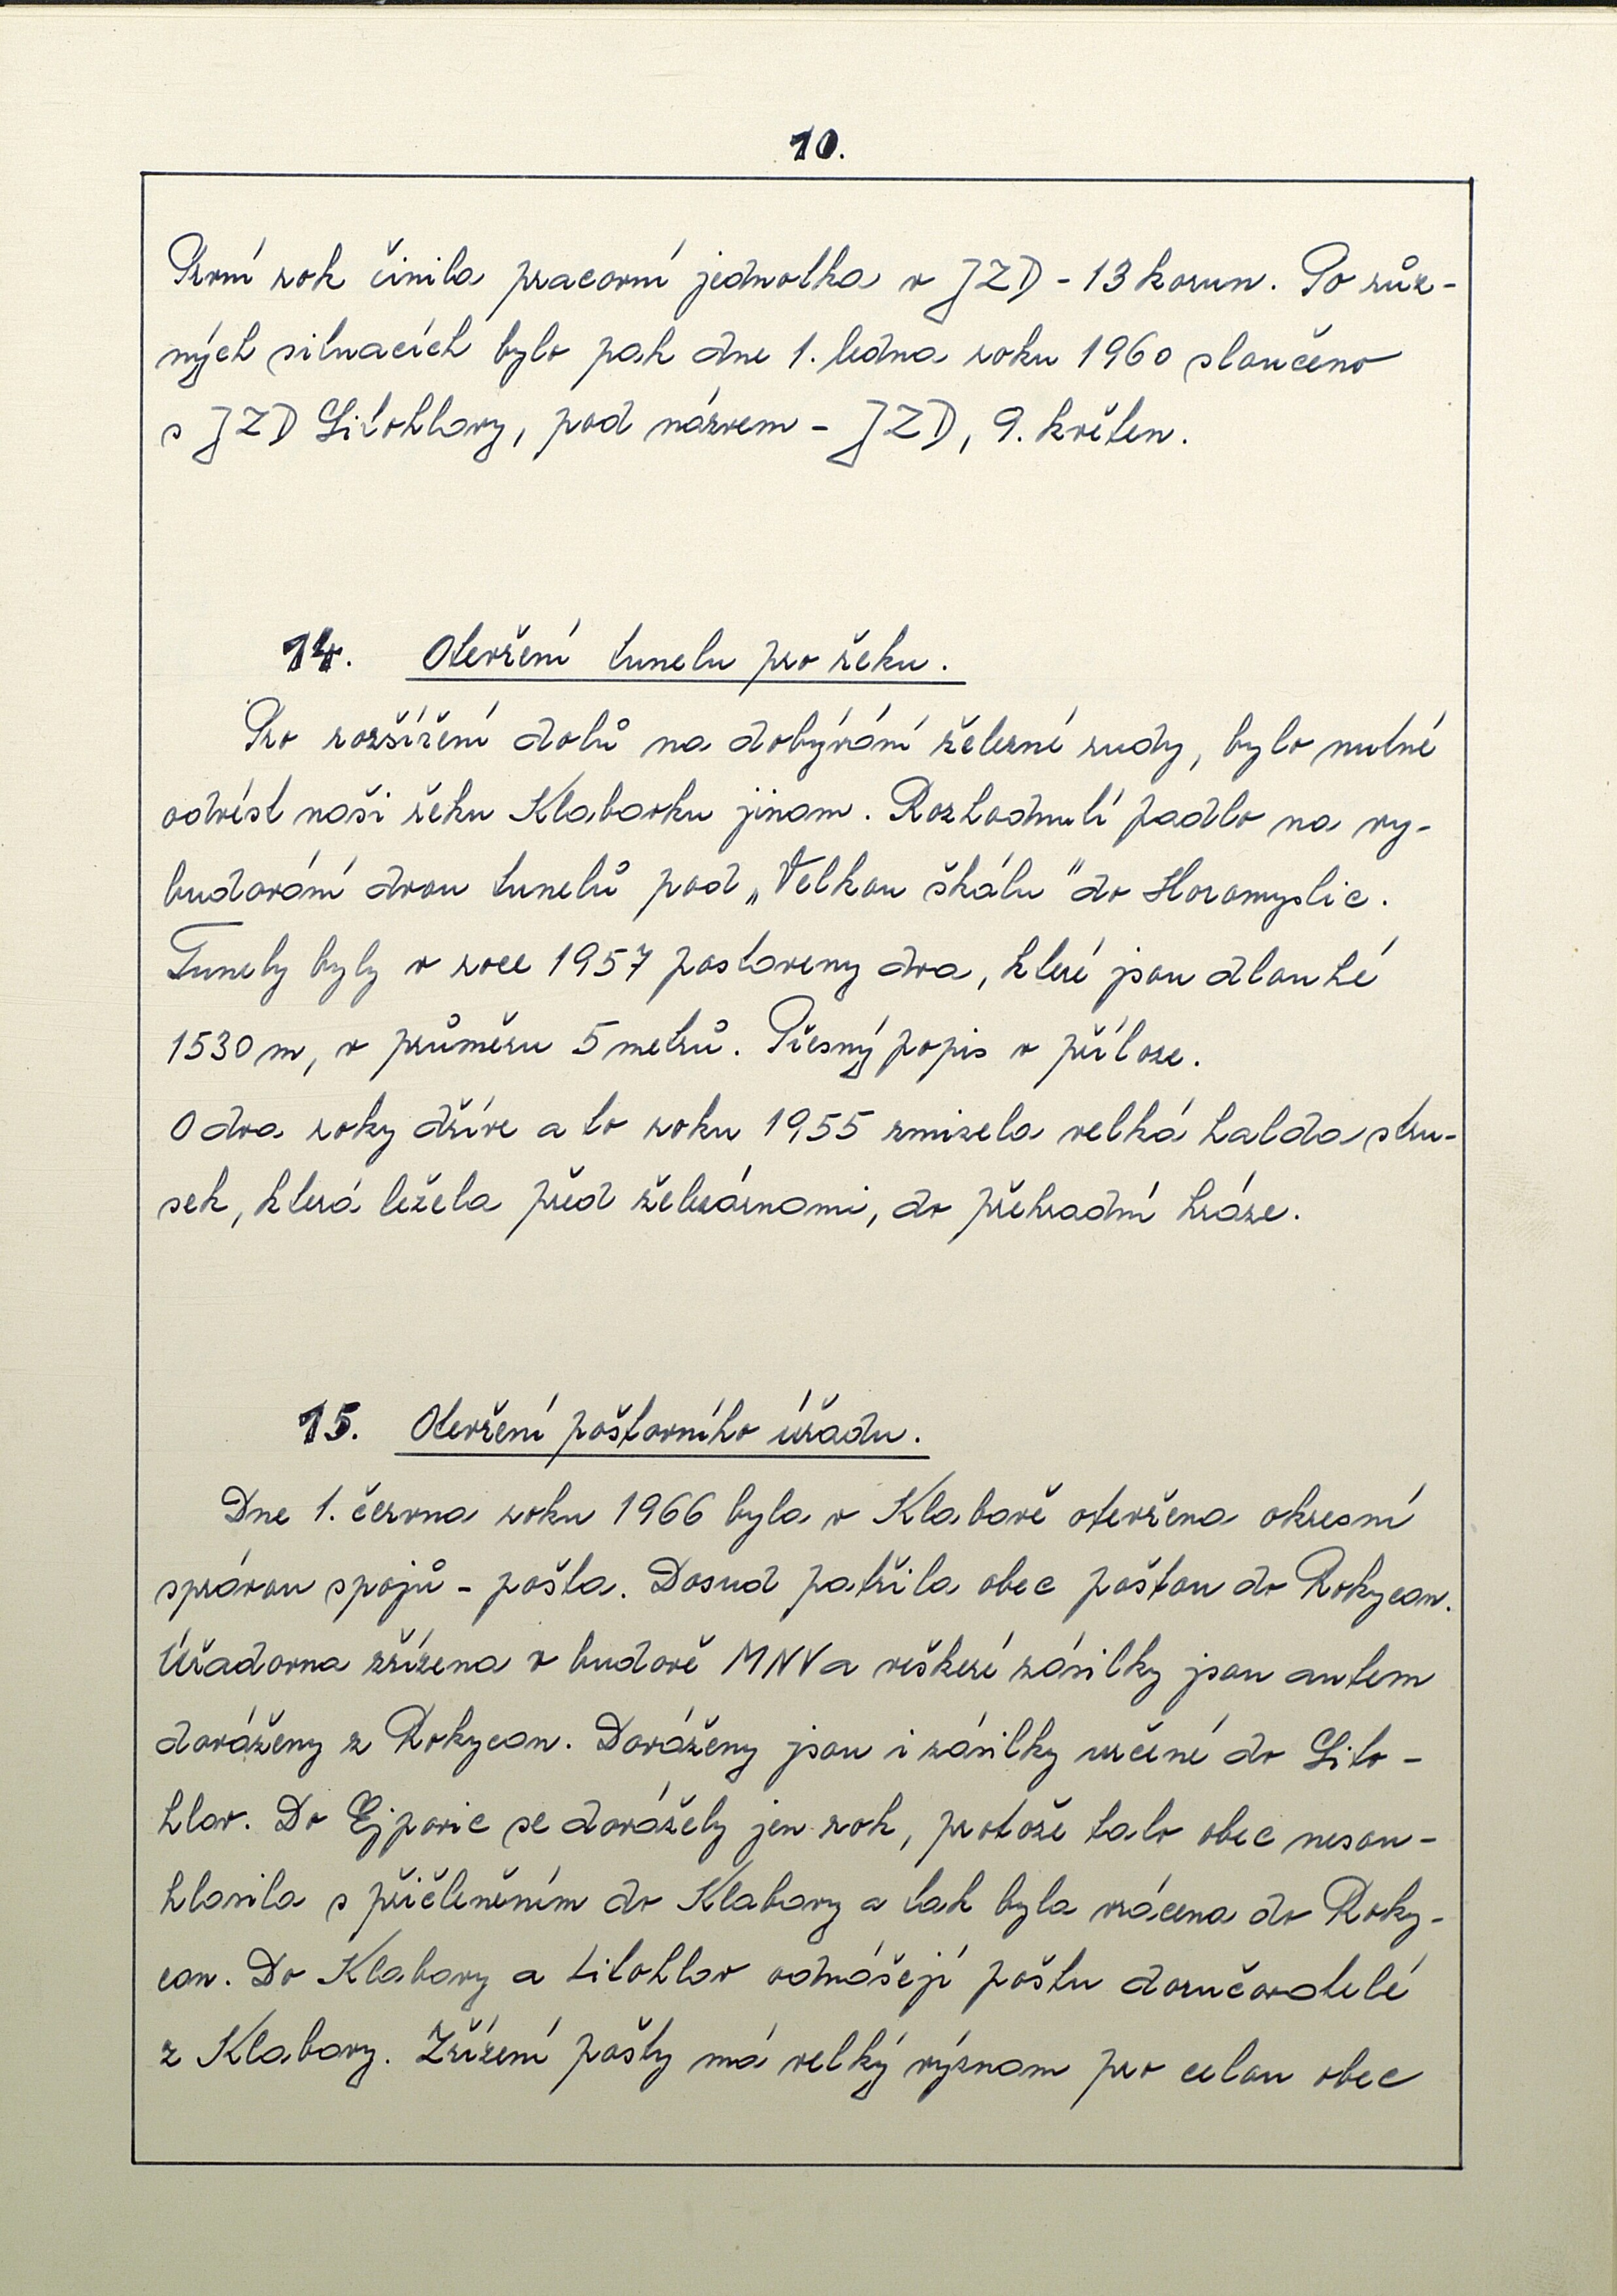 10.
První rok činila pracovní jednotka v JZD - 13 korun. Po růz-
ných situacích bylo pak dne 1. ledna roku 1960 sloučeno
s JZD Litohlavy, pod názvem - JZD, 9. květen.
14. Otevření tunelu pro řeku.
Pro rozšíření dolů na dobývání železné rudy, bylo nutné
odvést naši řeku Klabavku jinam. Rozhodnutí padlo na vy-
budování dvou tunelů pod „Velkou skálu" do Horomyslic.
Tunely byly v roce 1957 postaveny dva, které jsou dlouhé
1530 m, v průměru 5 metrů. Přesný popis v příloze.
O dva roky dříve a to roku 1955 zmizela velká halda stru-
sek, která ležela před železárnami, do přehradní hráze.
15. Otevření poštovního úřadu.
Dne 1. června roku 1966 byla v Klabavě otevřena okresní
správou spojů - pošta. Dosud patřila obec poštou do Rokycan.
Úřadovna zřízena v budově MNV a veškeré zásilky jsou autem
dováženy z Rokycan. Dováženy jsou i zásilky určené do Lito-
hlav. Do Ejpovic se dovážely jen rok, protože tato obec nesou-
hlasila s přičleněním do Klabavy a tak byla vrácena do Roky-
can. Do Klabavy a Litohlav odnášejí poštu doručovatelé
z Klabavy. Zřízení pošty má velký význam pro celou obec